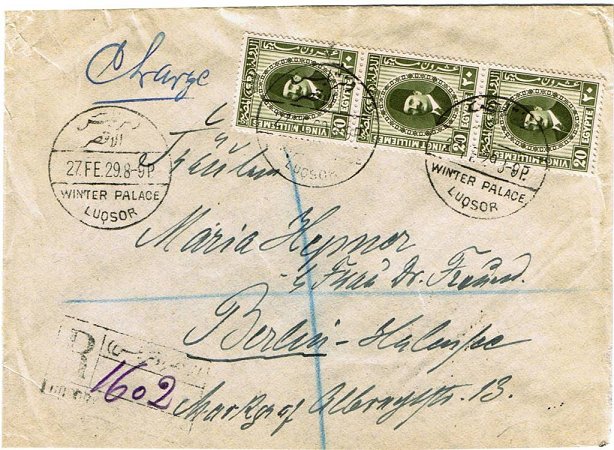 Charge
20 VINGT MILLIEMES
20 VINGT MILLIEMES
20 VINGT MILLIEMES
الاقصر
27.FE.29.8-9P
WINTER PALACE
LUQSOR
LUQSOR
29.8-9P
WINTER PALACE
LUQSOR
Fräulein
Maria Hepner
Frau Dr. Freund.
Berlin-Halensee
Markgraf Albrechtstr. 13.
R
1602